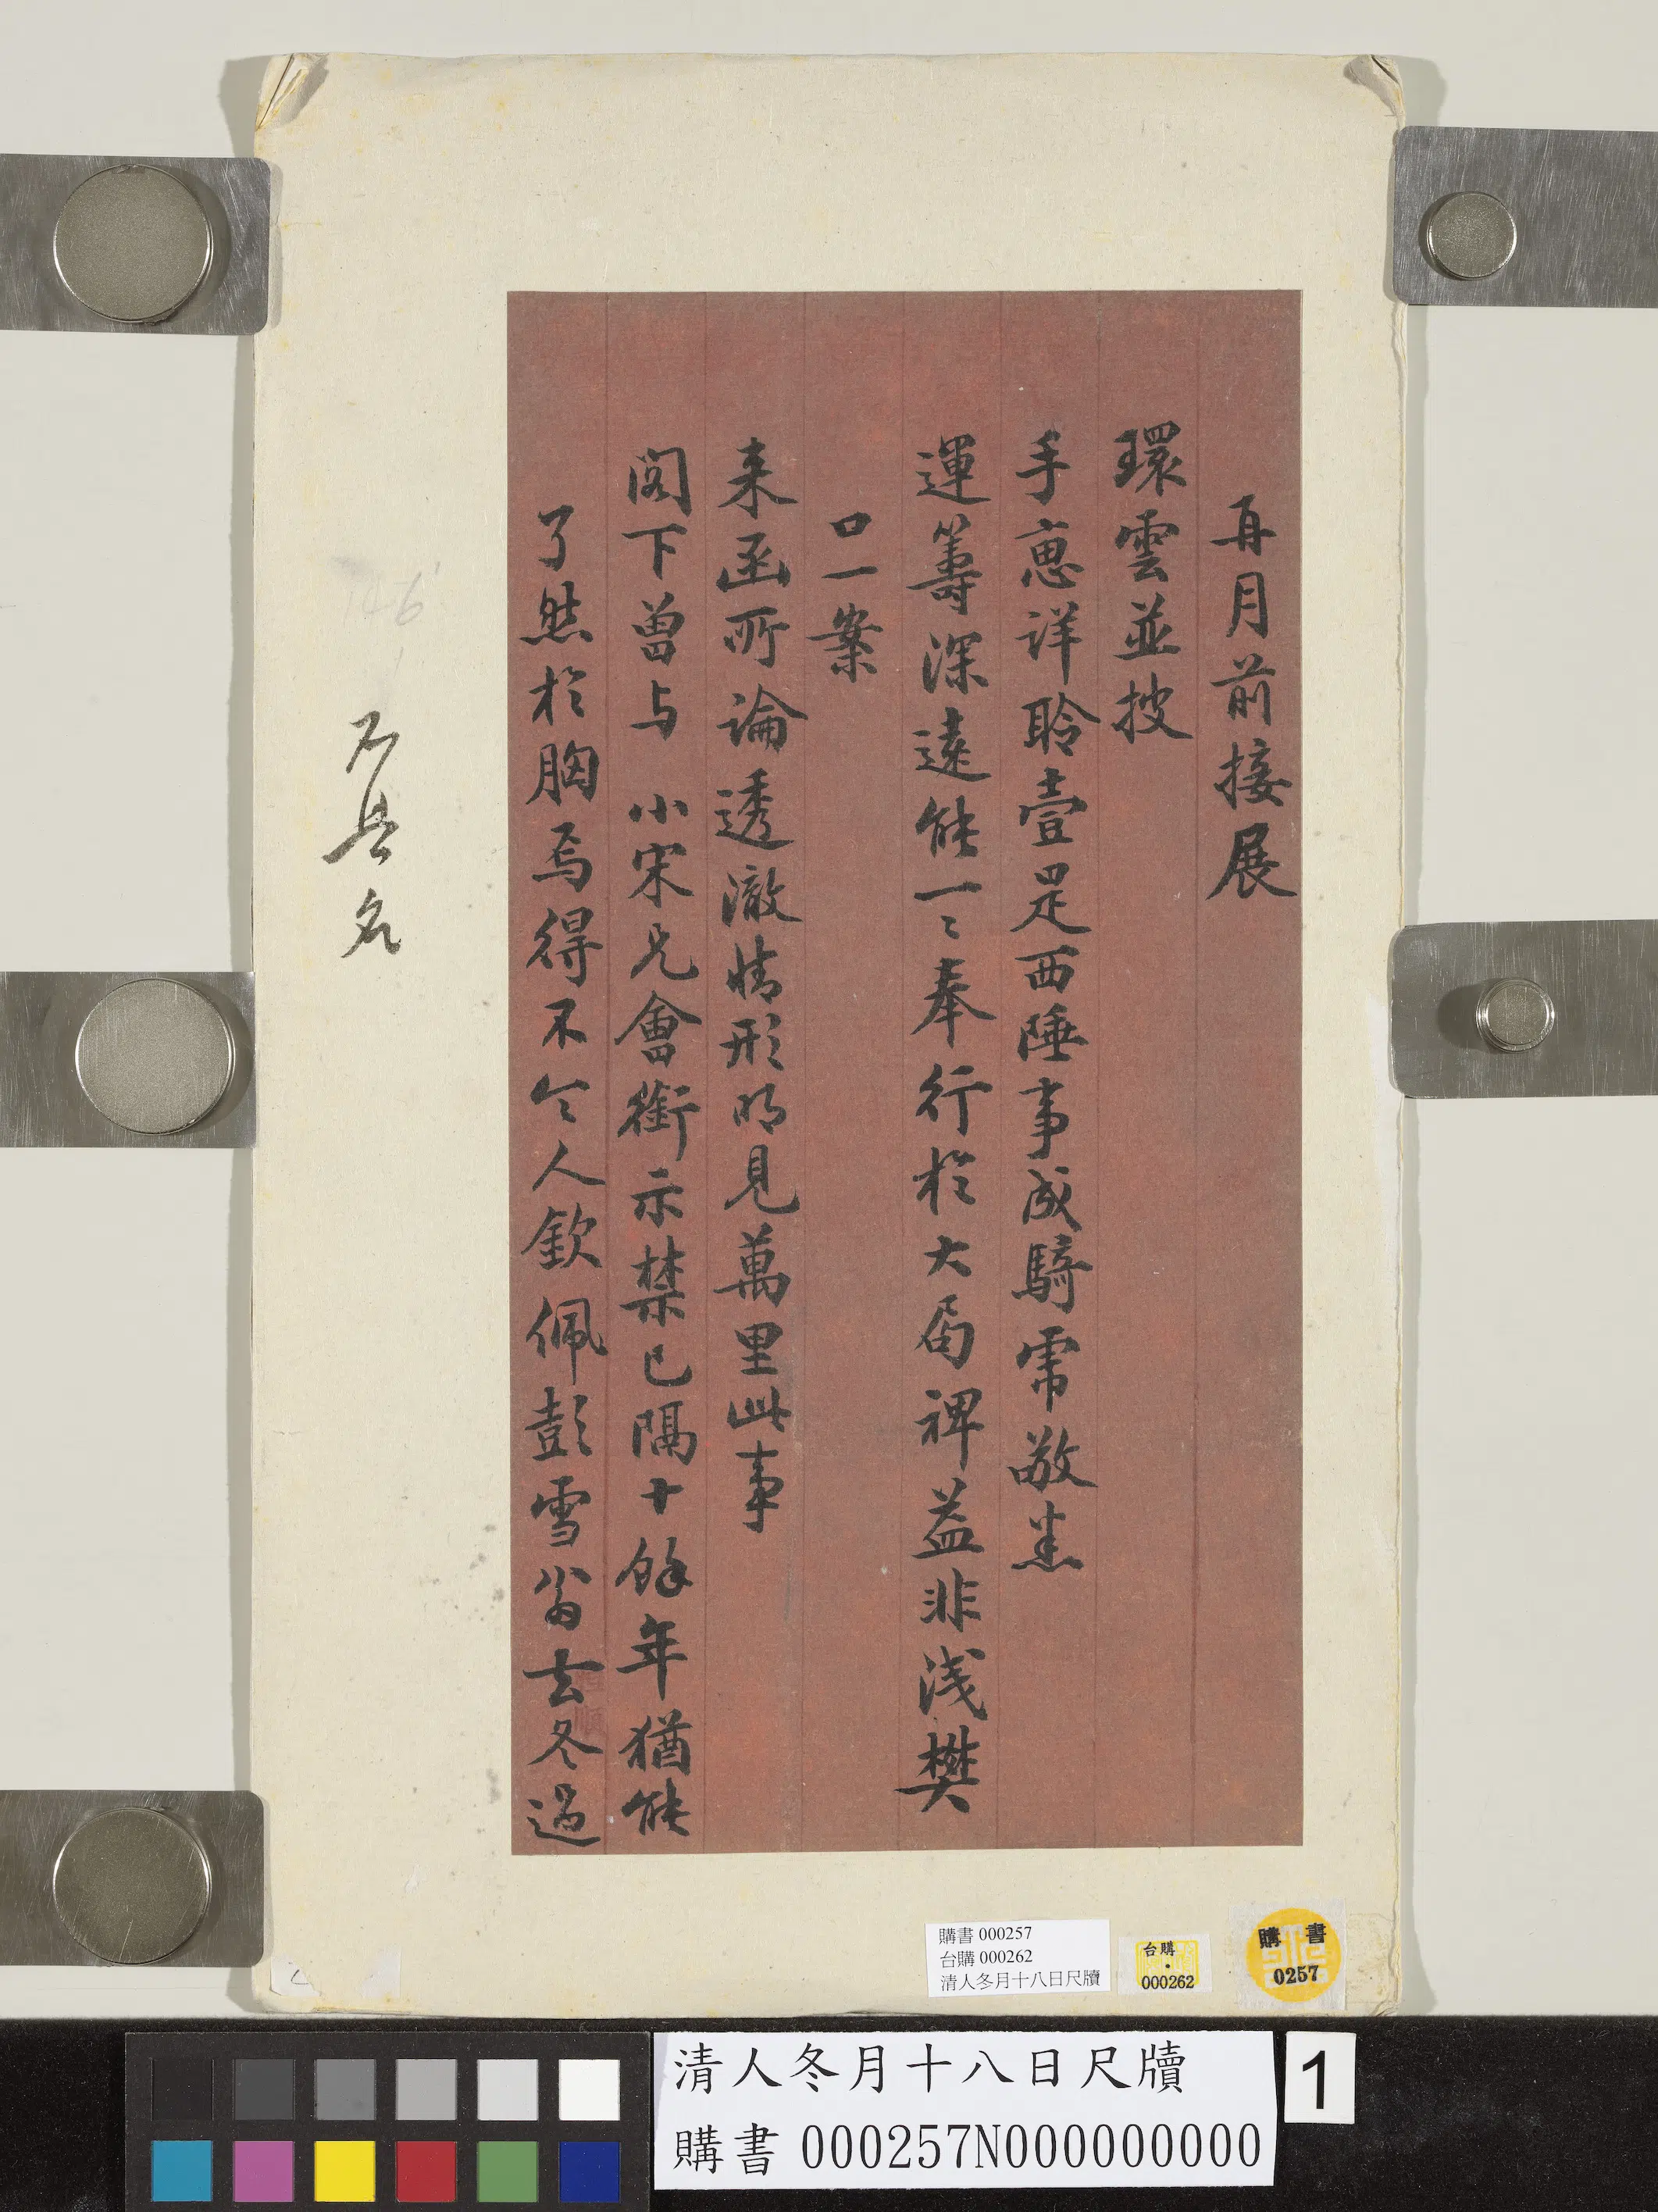 再月前接展
環雲並披
手惠詳聆壹是西陲事成騎虎敬悉
運籌深遠能一〻奉行於大局裨益非淺樊
口一案
來函所論透澈情形明見萬里此事
閣下曾与 小宋兄會銜示禁已隔十餘年猶能
了然於胸焉得不令人欽佩彭雪翁去冬過
不具名
146
購書 000257
台購 000262
清人冬月十八日尺牘
台購
000262
購書
0257
清人冬月十八日尺牘
購書 000257N000000000
1